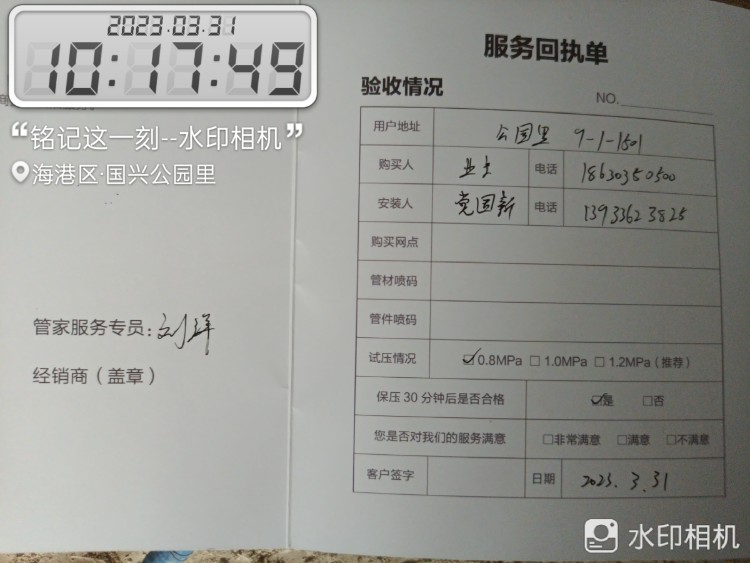 2023.03.31
10:17:49
“铭记这一刻--水印相机”
海港区·国兴公园里
管家服务专员：刘洋
经销商（盖章）
服务回执单
验收情况
NO.
用户地址 公园里 9-1-1501
购买人 业主 电话 18630350500
安装人 党国新 电话 13933623825
购买网点
管材喷码
管件喷码
试压情况 ☑0.8MPa □1.0MPa □1.2MPa（推荐）
保压30分钟后是否合格 ☑是 □否
您是否对我们的服务满意 □非常满意 □满意 □不满意
客户签字 日期 2023.3.31
水印相机